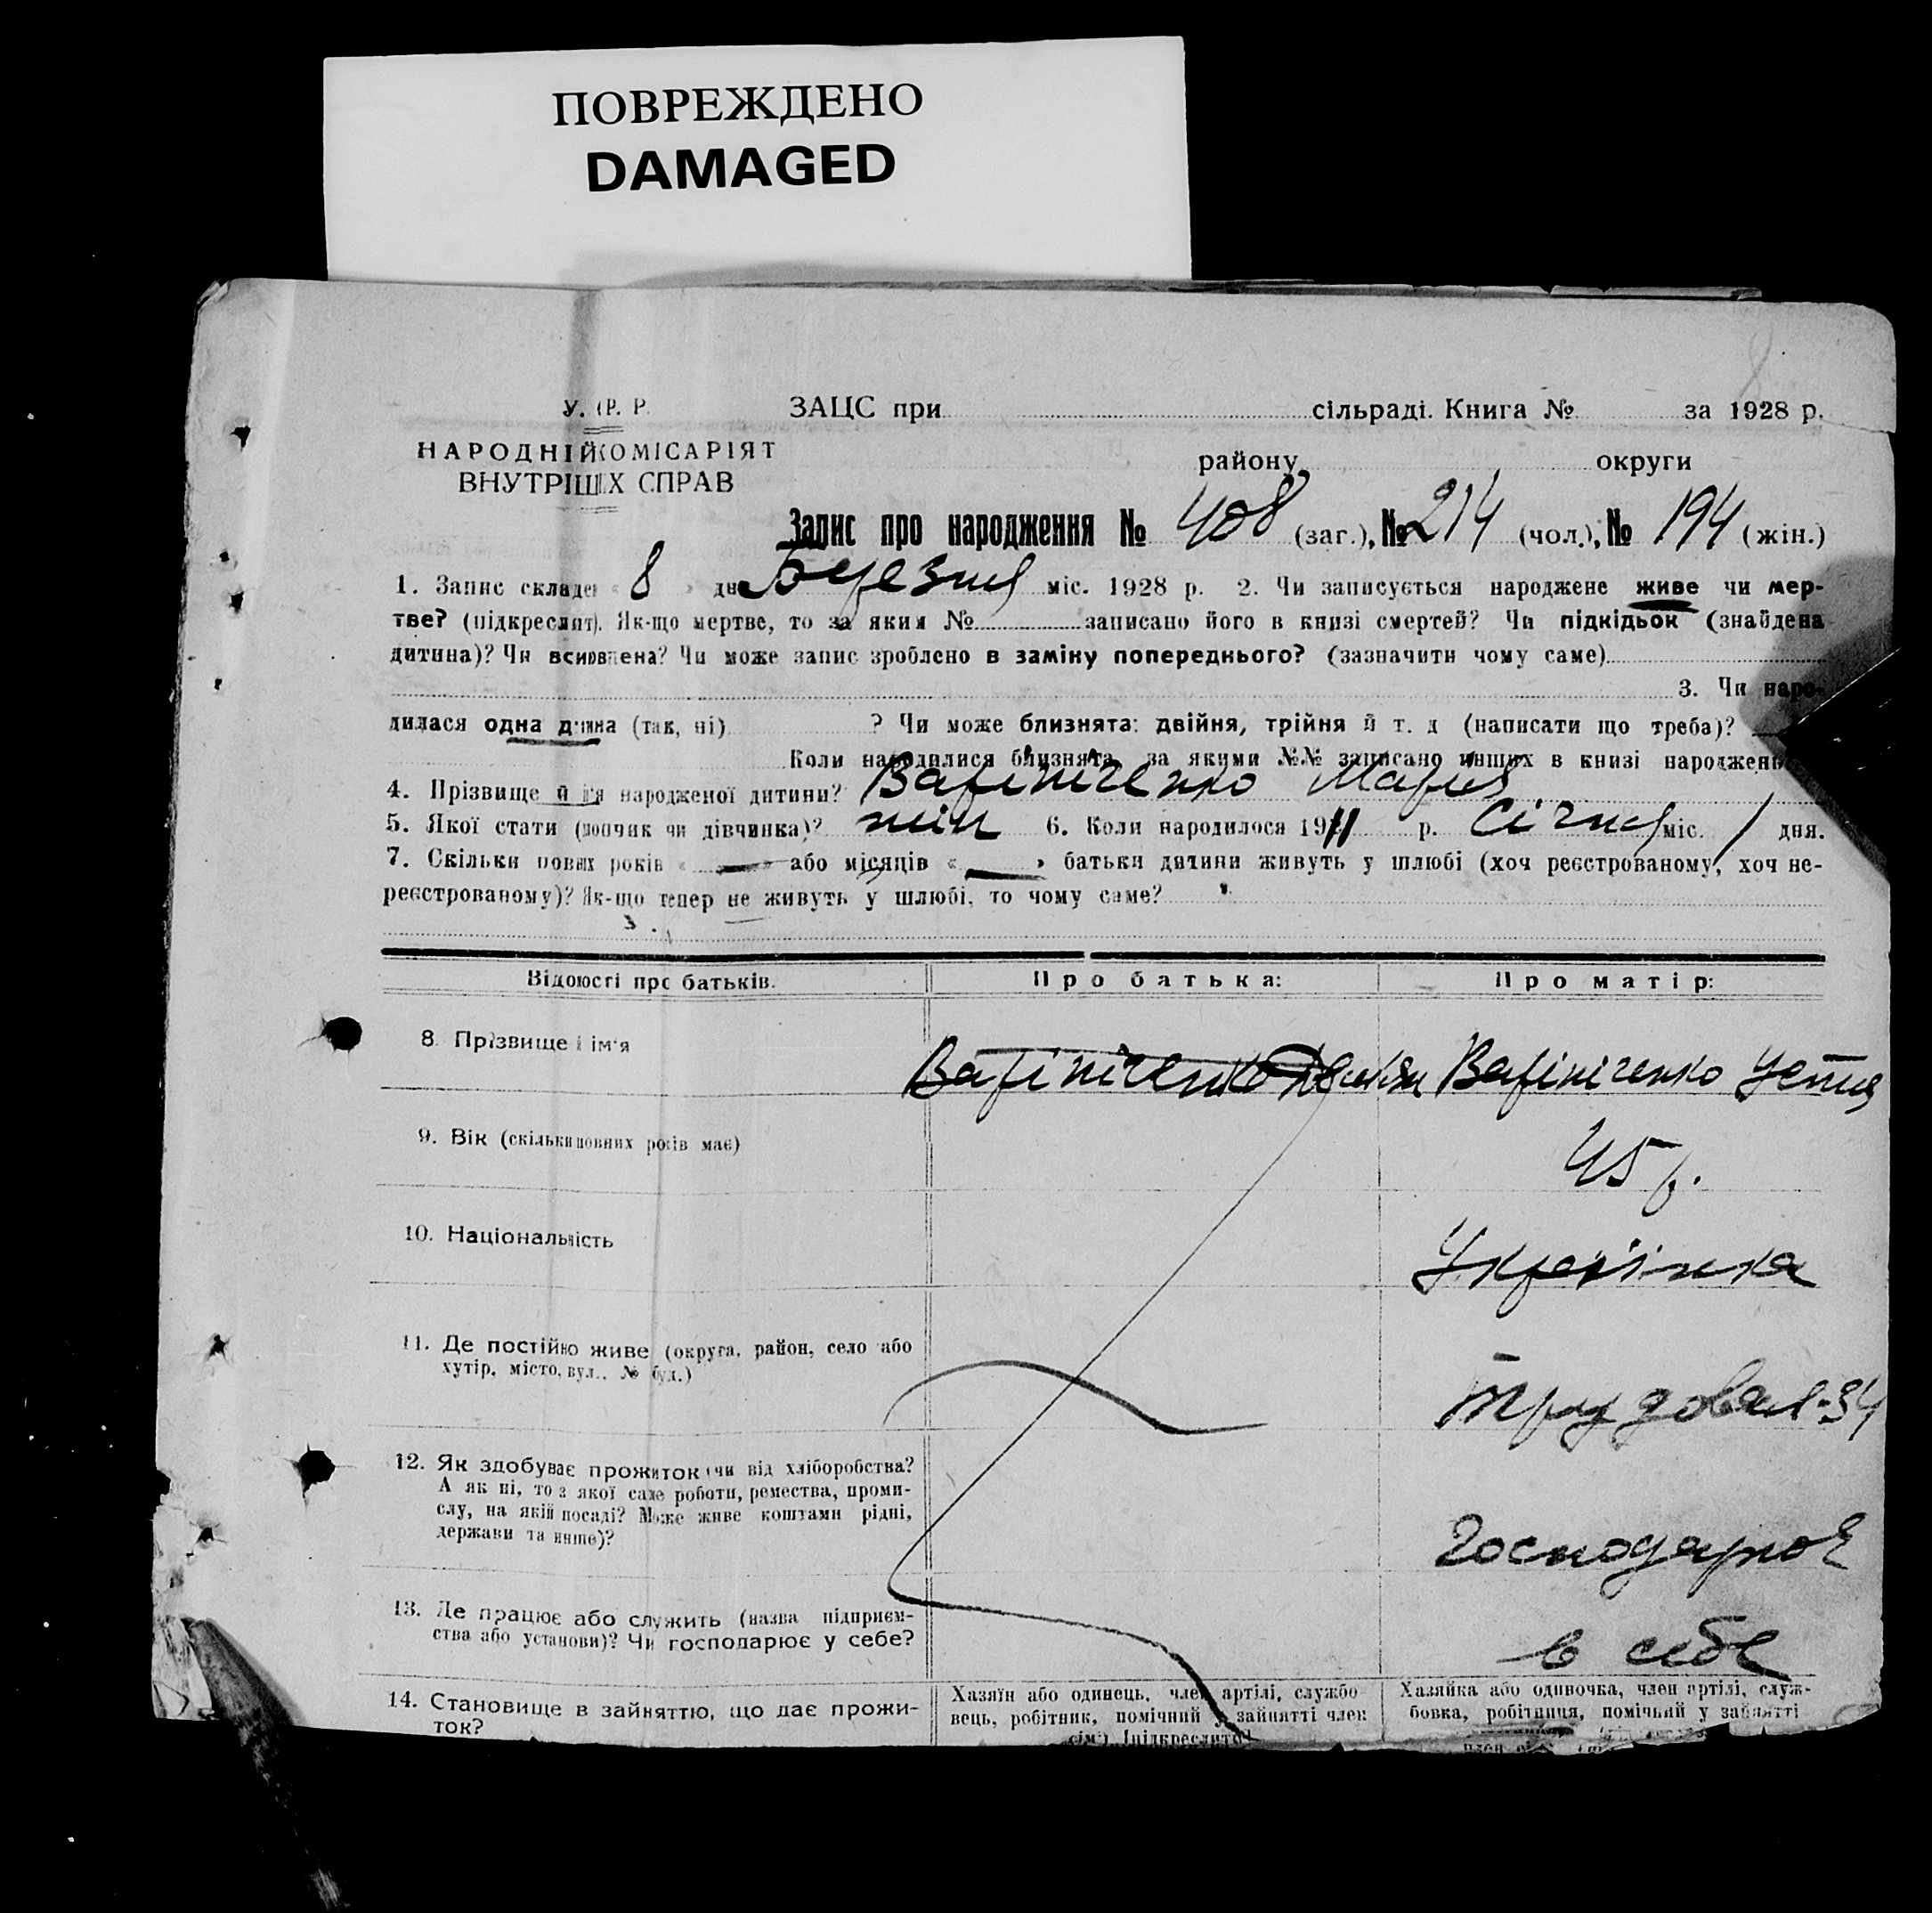 ПОВРЕЖДЕНО
DAMAGED
У. Р. Р.
ЗАЦС при сільраді. Книга № за 1928 р.
НАРОДНІЙ КОМІСАРІЯТ
району округи
ВНУТРІШ Х СПРАВ
Запис про народження № 408 (заг.), № 214 (чол.), № 194 (жін.)
1. Запис складе « 8 » дн Березня міс. 1928 р. 2. Чи записується народжене живе чи мер-
тве? (підкреслит). Як-що мертве, то за яким № записано його в книзі смертей? Чи підкідьок (знайдена
дитина)? Чи всиновлена? Чи може запис зроблено в заміну попереднього? (зазначити чому саме)
3. Чи наро-
дилася одна дитина (так, ні) ? Чи може близнята: двійня, трійня й т. д (написати що треба)?
Коли народилися близнята, за якими №№ записано инших в книзі народжень
4. Прізвище й ім'я народженої дитини? Варініченко Мария
5. Якої стати (хлопчик чи дівчинка)? жін 6. Коли народилося 1911 р. Січня міс. 1 дня.
7. Скільки повних років « » або місяців « » батьки дитини живуть у шлюбі (хоч реєстрованому, хоч не-
реєстрованому)? Як-що тепер не живуть у шлюбі, то чому саме?
Відомості про батьків. Про батька: Про матір:
8. Прізвище і ім'я Варініченко Варініченко Устня
9. Вік (скільки повних років має) 45 р.
10. Національність Українка
11. Де постійно живе (округа, район, село або
хутір, місто, вул., № буд.) Трудовая-34
12. Як здобуває прожиток (чи від хліборобства?
А як ні, то з якої саме роботи, ремества, проми-
слу, на якій посаді? Може живе коштами рідні,
держави та инше)? Господарює
13. Де працює або служить (назва підприєм-
ства або установи)? Чи господарює у себе? в себе
14. Становище в зайняттю, що дає прожи-
ток?
Хазяїн або одинець, член артілі, службо
вець, робітник, помічний у зайнятті член
сім'ї (підкреслити)
Хазяйка або одиночка, член артілі, служ-
бовка, робітниця, помічний у зайнятті